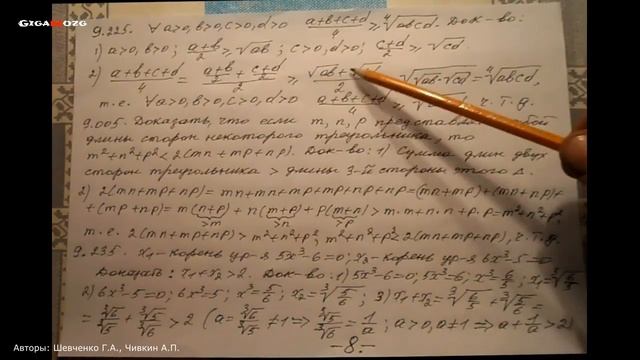 GIGAMOZG
9.225. ∀ a>0, b>0, c>0, d>0 (a+b+c+d)/4 ≥ ⁴√abcd. Док-во:
1) a>0, b>0; (a+b)/2 ≥ √ab; c>0, d>0; (c+d)/2 ≥ √cd.
2) (a+b+c+d)/4 = ((a+b)/2 + (c+d)/2)/2 ≥ (√ab + /2 √(√ab·√cd) = ⁴√abcd,
т.е. ∀ a>0, b>0, c>0, d>0 (a+b+c+d)/4 ≥ ч.т.д.
9.005. Доказать, что если m, n, p
длины сторон некоторого треугольника, то
m²+n²+p² < 2(mn+mp+np). Док-во: 1) Сумма длин двух
сторон треугольника > длины 3-й стороны этого Δ.
2) 2(mn+mp+np) = mn+mn+mp+mp+np+np = (mn+mp)+(mn+np)+
+(mp+np) = m(n+p) + n(m+p) + p(m+n) > m·m+n·n+p·p = m²+n²+p²
>m >n >p
т.е. 2(mn+mp+np) > m²+n²+p², m²+n²+p² < 2(mn+mp+np), ч.т.д.
9.235. x₁-корень ур-я 5x³-6=0; x₂-корень ур-я 6x³-5=0
Доказать: x₁+x₂>2. Док-во: 1) 5x³-6=0; 5x³=6; x³=6/5; x₁=∛(6/5)
2) 6x³-5=0; 6x³=5; x³=5/6; x₂=∛(5/6); 3) x₁+x₂=∛(6/5)+∛(5/6)=
= ∛6/∛5 + ∛5/∛6 > 2 (a=∛6/∛5≠1 ⇒ ∛5/∛6=1/a; a>0, a≠1 ⇒ a+1/a>2)
-8.-
Авторы: Шевченко Г.А., Чивкин А.П.